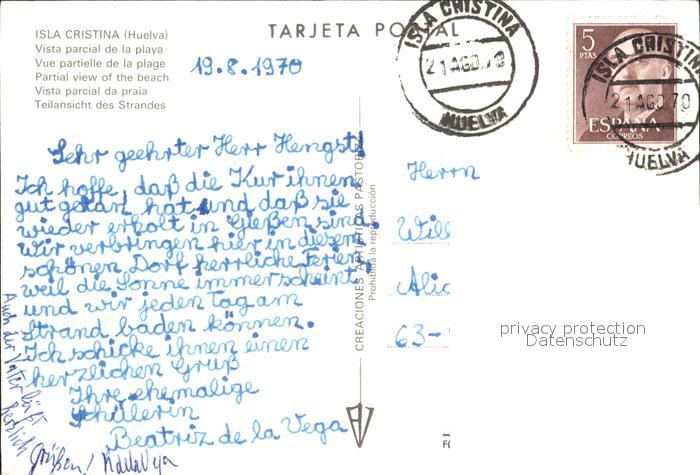 ISLA CRISTINA (Huelva)
Vista parcial de la playa
Vue partielle de la plage
Partial view of the beach
Vista parcial da praia
Teilansicht des Strandes
TARJETA POSTAL
19.8.1970
ISLA CRISTINA
21 AGO 70
HUELVA
5
PTAS
ESPAÑA
CORREOS
ISLA CRISTINA
21 AGO 70
HUELVA
Sehr geehrter Herr Hengstl
Ich hoffe, daß die Kur ihnen
gut getan hat und daß sie
wieder erholt in Gießen sind.
Wir verbringen hier in diesem
schönen Dorf herrliche Ferien
weil die Sonne immer scheint
und wir jeden Tag am
Strand baden können.
Ich schicke ihnen einen
herzlichen Gruß
Ihre ehemalige
Schülerin
Beatriz de la Vega
Auch der Vater läßt
herzlich
grüßen!
CREACIONES ARTISTICAS PASTOR
Prohibida la reproducción
Herrn
Will
Alic
63-
privacy protection
Datenschutz